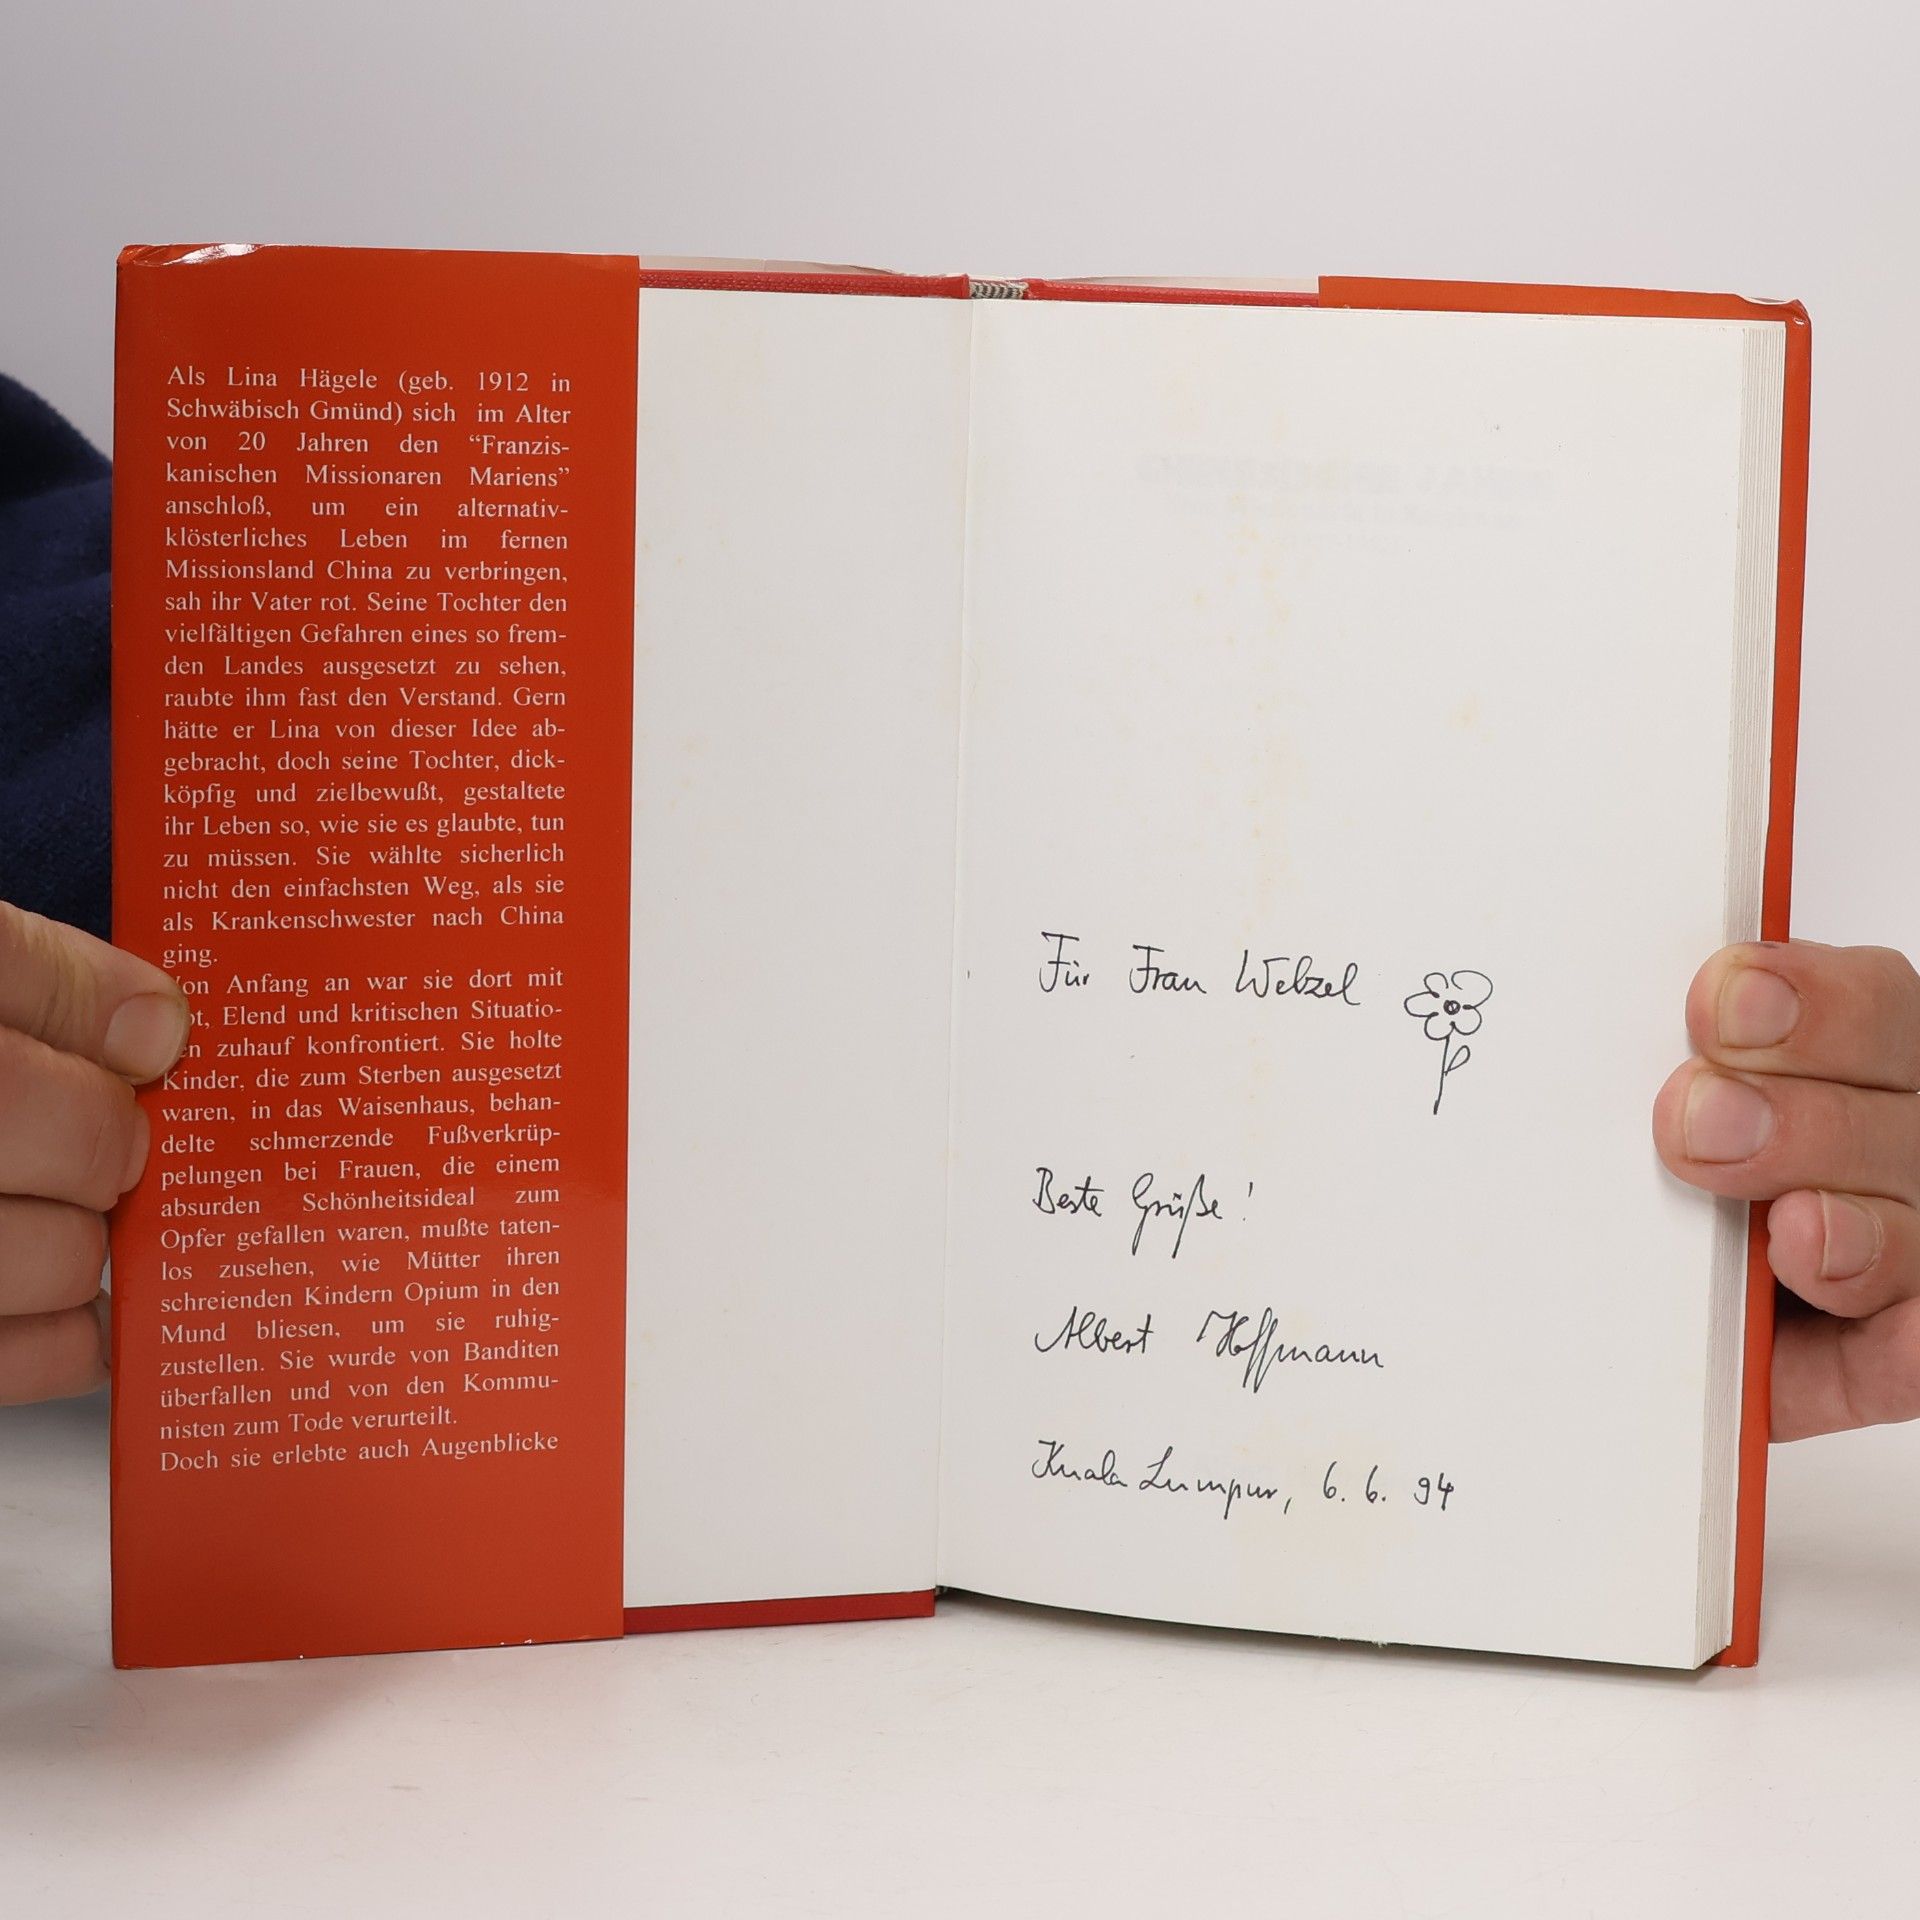 Als Lina Hägele (geb. 1912 in
Schwäbisch Gmünd) sich im Alter
von 20 Jahren den “Franzis-
kanischen Missionaren Mariens”
anschloß, um ein alternativ-
klösterliches Leben im fernen
Missionsland China zu verbringen,
sah ihr Vater rot. Seine Tochter den
vielfältigen Gefahren eines so frem-
den Landes ausgesetzt zu sehen,
raubte ihm fast den Verstand. Gern
hätte er Lina von dieser Idee ab-
gebracht, doch seine Tochter, dick-
köpfig und zielbewußt, gestaltete
ihr Leben so, wie sie es glaubte, tun
zu müssen. Sie wählte sicherlich
nicht den einfachsten Weg, als sie
als Krankenschwester nach China
ging.
Von Anfang an war sie dort mit
Elend und kritischen Situatio-
zuhauf konfrontiert. Sie holte
Kinder, die zum Sterben ausgesetzt
waren, in das Waisenhaus, behan-
delte schmerzende Fußverkrüp-
pelungen bei Frauen, die einem
absurden Schönheitsideal zum
Opfer gefallen waren, mußte taten-
los zusehen, wie Mütter ihren
schreienden Kindern Opium in den
Mund bliesen, um sie ruhig-
zustellen. Sie wurde von Banditen
überfallen und von den Kommu-
nisten zum Tode verurteilt.
Doch sie erlebte auch Augenblicke
Für Frau Welzel
Beste Grüße!
Albert Hoffmann
Kuala Lumpur, 6. 6. 94